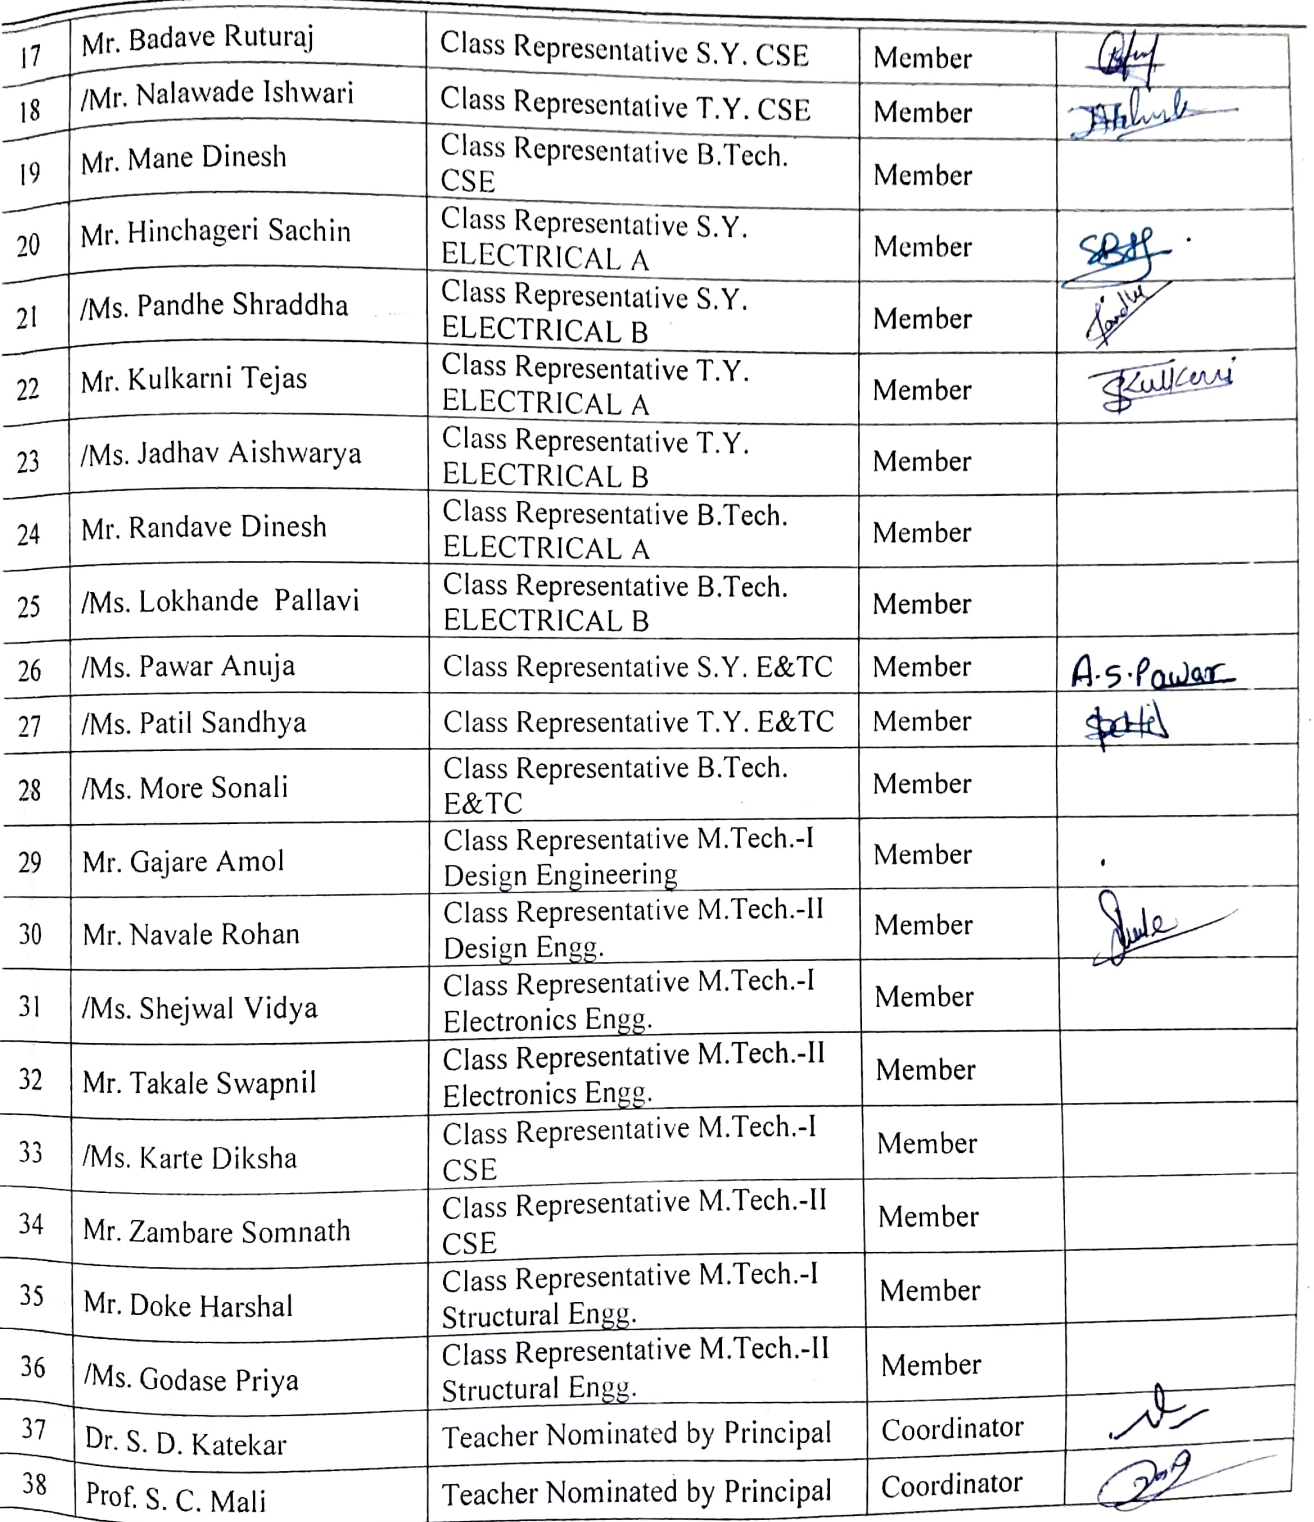 17 Mr. Badave Ruturaj Class Representative S.Y. CSE Member
18 /Mr. Nalawade Ishwari Class Representative T.Y. CSE Member
19 Mr. Mane Dinesh Class Representative B.Tech. Member
CSE
20 Mr. Hinchageri Sachin Class Representative S.Y. Member
ELECTRICAL A
21 /Ms. Pandhe Shraddha Class Representative S.Y. Member
ELECTRICAL B
22 Mr. Kulkarni Tejas Class Representative T.Y. Member Kulkarni
ELECTRICAL A
23 /Ms. Jadhav Aishwarya Class Representative T.Y. Member
ELECTRICAL B
24 Mr. Randave Dinesh Class Representative B.Tech. Member
ELECTRICAL A
25 /Ms. Lokhande Pallavi Class Representative B.Tech. Member
ELECTRICAL B
26 /Ms. Pawar Anuja Class Representative S.Y. E&TC Member A.S.Pawar
27 /Ms. Patil Sandhya Class Representative T.Y. E&TC Member
28 /Ms. More Sonali Class Representative B.Tech. Member
E&TC
29 Mr. Gajare Amol Class Representative M.Tech.-I Member
Design Engineering
30 Mr. Navale Rohan Class Representative M.Tech.-II Member
Design Engg.
31 /Ms. Shejwal Vidya Class Representative M.Tech.-I Member
Electronics Engg.
32 Mr. Takale Swapnil Class Representative M.Tech.-II Member
Electronics Engg.
33 /Ms. Karte Diksha Class Representative M.Tech.-I Member
CSE
34 Mr. Zambare Somnath Class Representative M.Tech.-II Member
CSE
35 Mr. Doke Harshal Class Representative M.Tech.-I Member
Structural Engg.
36 /Ms. Godase Priya Class Representative M.Tech.-II Member
Structural Engg.
37 Dr. S. D. Katekar Teacher Nominated by Principal Coordinator
38 Prof. S. C. Mali Teacher Nominated by Principal Coordinator